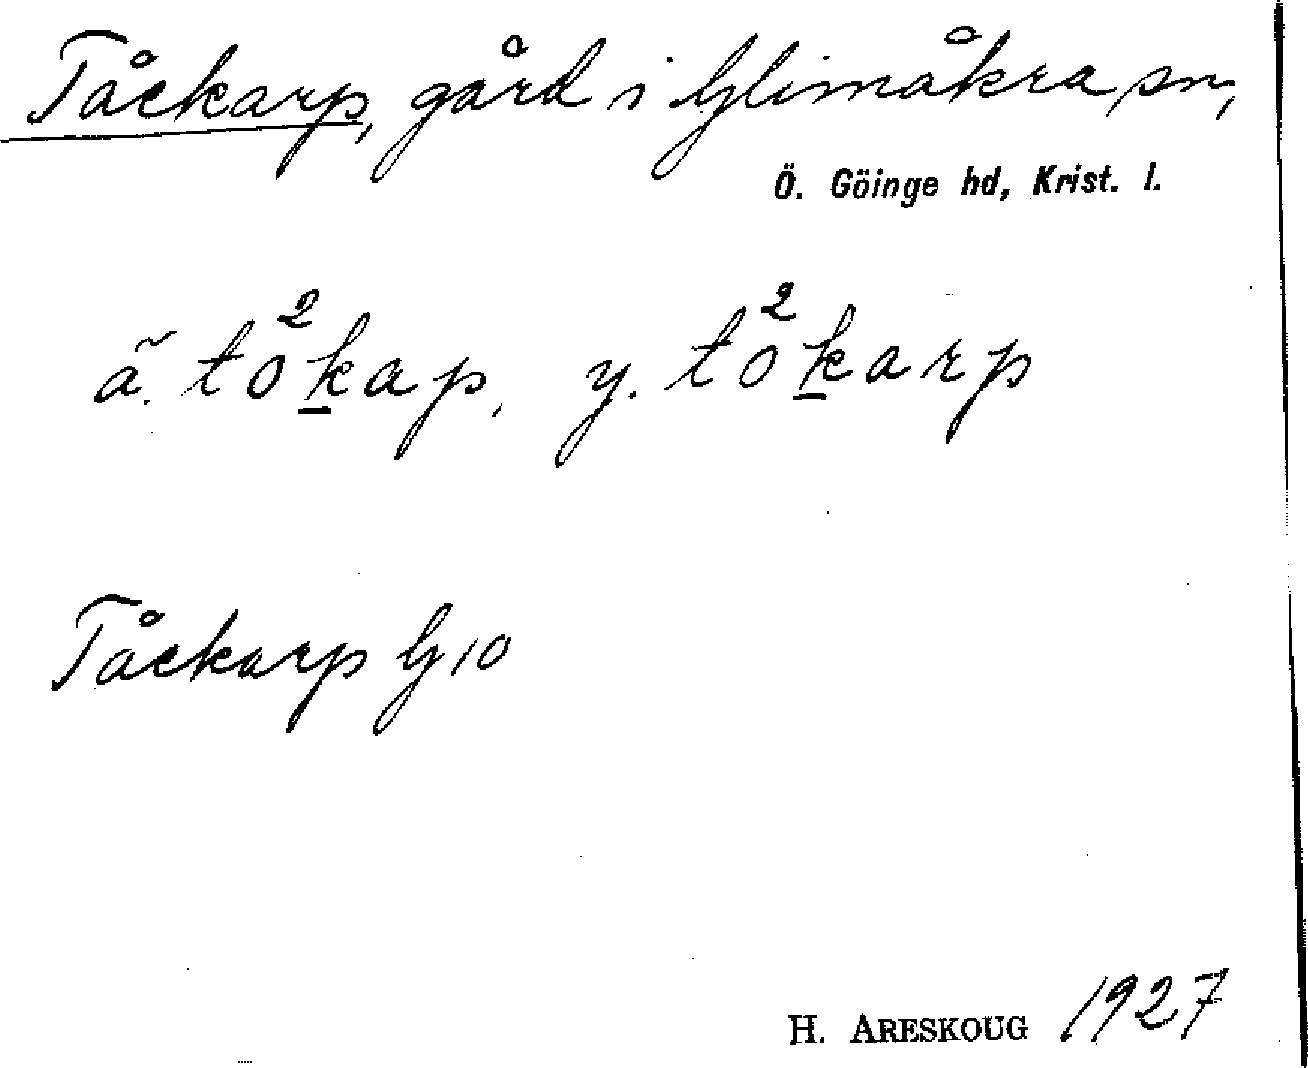 Tåckarp, gård i Glimåkra sn,
Ö. Göinge hd, Krist. l.
ä. to²kap, y. to²karp
Tåckarp G 10
H. ARESKOUG 1927